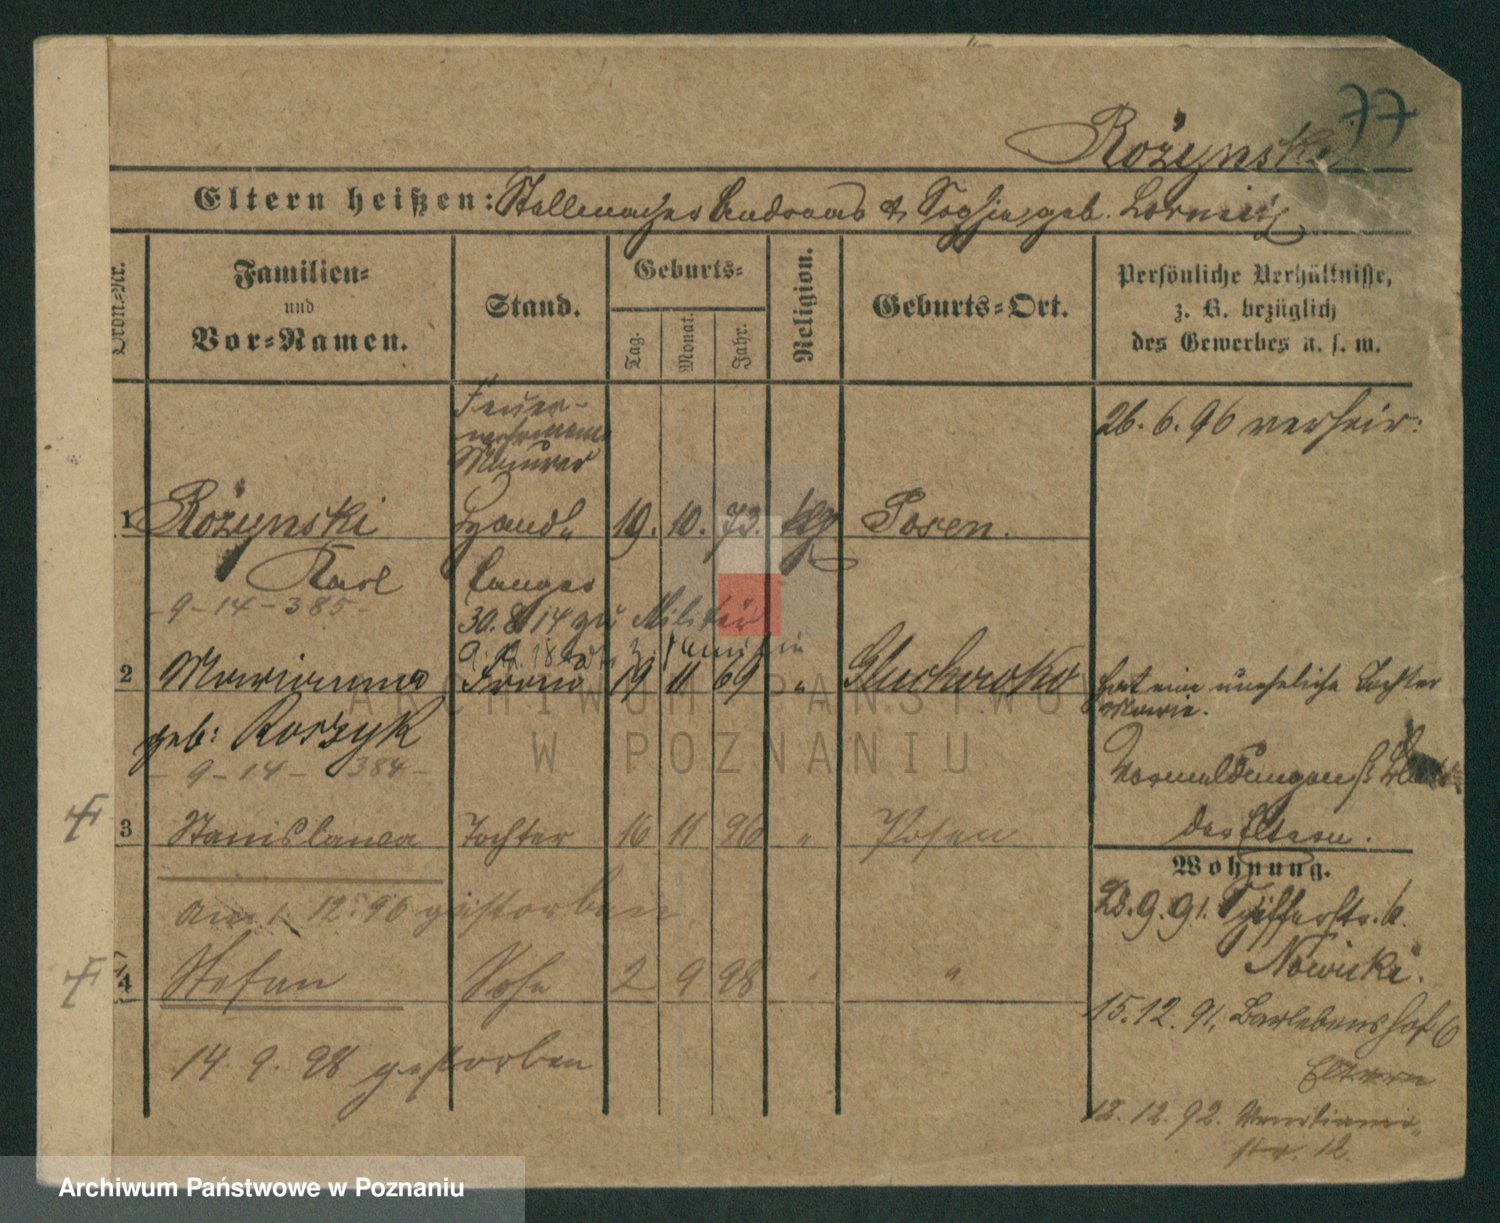 77
Rożynski
Eltern heißen: Stellmacher Andreas & Sophie, geb.
Ordn.-Nr.
Familien-
und
Vor-Namen.
Stand.
Geburts-
Tag.
Monat.
Jahr.
Religion.
Geburts-Ort.
Persönliche Verhältnisse,
z. B. bezüglich
des Gewerbes u. s. w.
Feuer-
wehrmann
Maurer
26. 6. 96 verheir:
1 Rożynski Handl. 19. 10. 73. Posen.
Karl
- 9 - 14 - 385 -
30. 8. 14 zu Militär
2 Marianna Frau 19 11 69 " Gluchowko
hat eine uneheliche Tochter
Marie.
geb: Koszyk
- 9 - 14 - 384 -
der Eltern.
3 Stanislawa Tochter 16 11 96 " Posen
am 1. 12. 96 gestorben.
4 Stefan Sohn 2 9 98 " "
14. 9. 98 gestorben
Wohnung.
23. 9. 91. Schifferstr. 6.
Nowicki.
15. 12. 91. Barlebenshof 6
Eltern
12. 12. 92. Venetianer-
str. 12.
ARCHIWUM PAŃSTWOWE
W POZNANIU
Archiwum Państwowe w Poznaniu